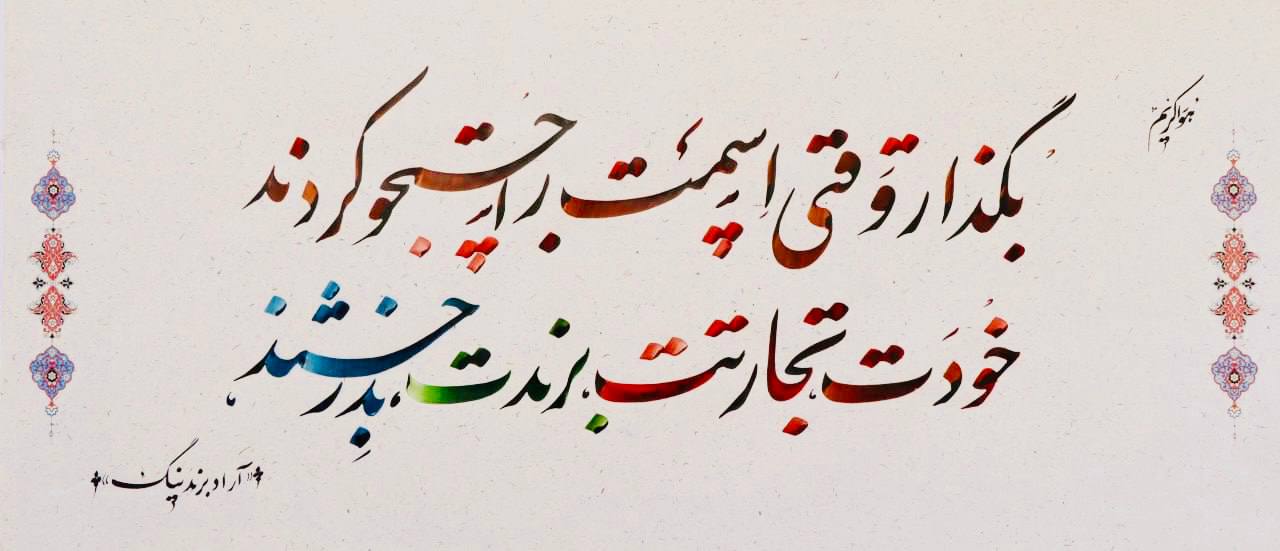 هوالکریم
بگذار وقتی اسمت را جستجو کردند
خودت، تجارتت، برندت، بدرخشند،
«آراد برندینگ»